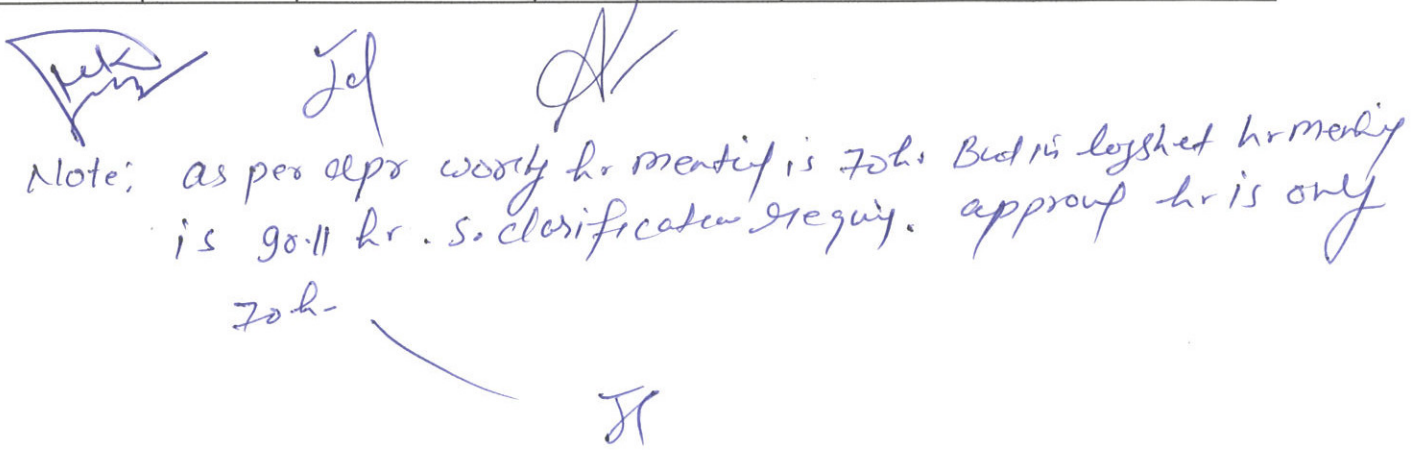 Note: as per dpr working hr mention is 70hr But in logshet hr mention
is 90.11 hr. So clarification requir. approve hr is only
70 hr